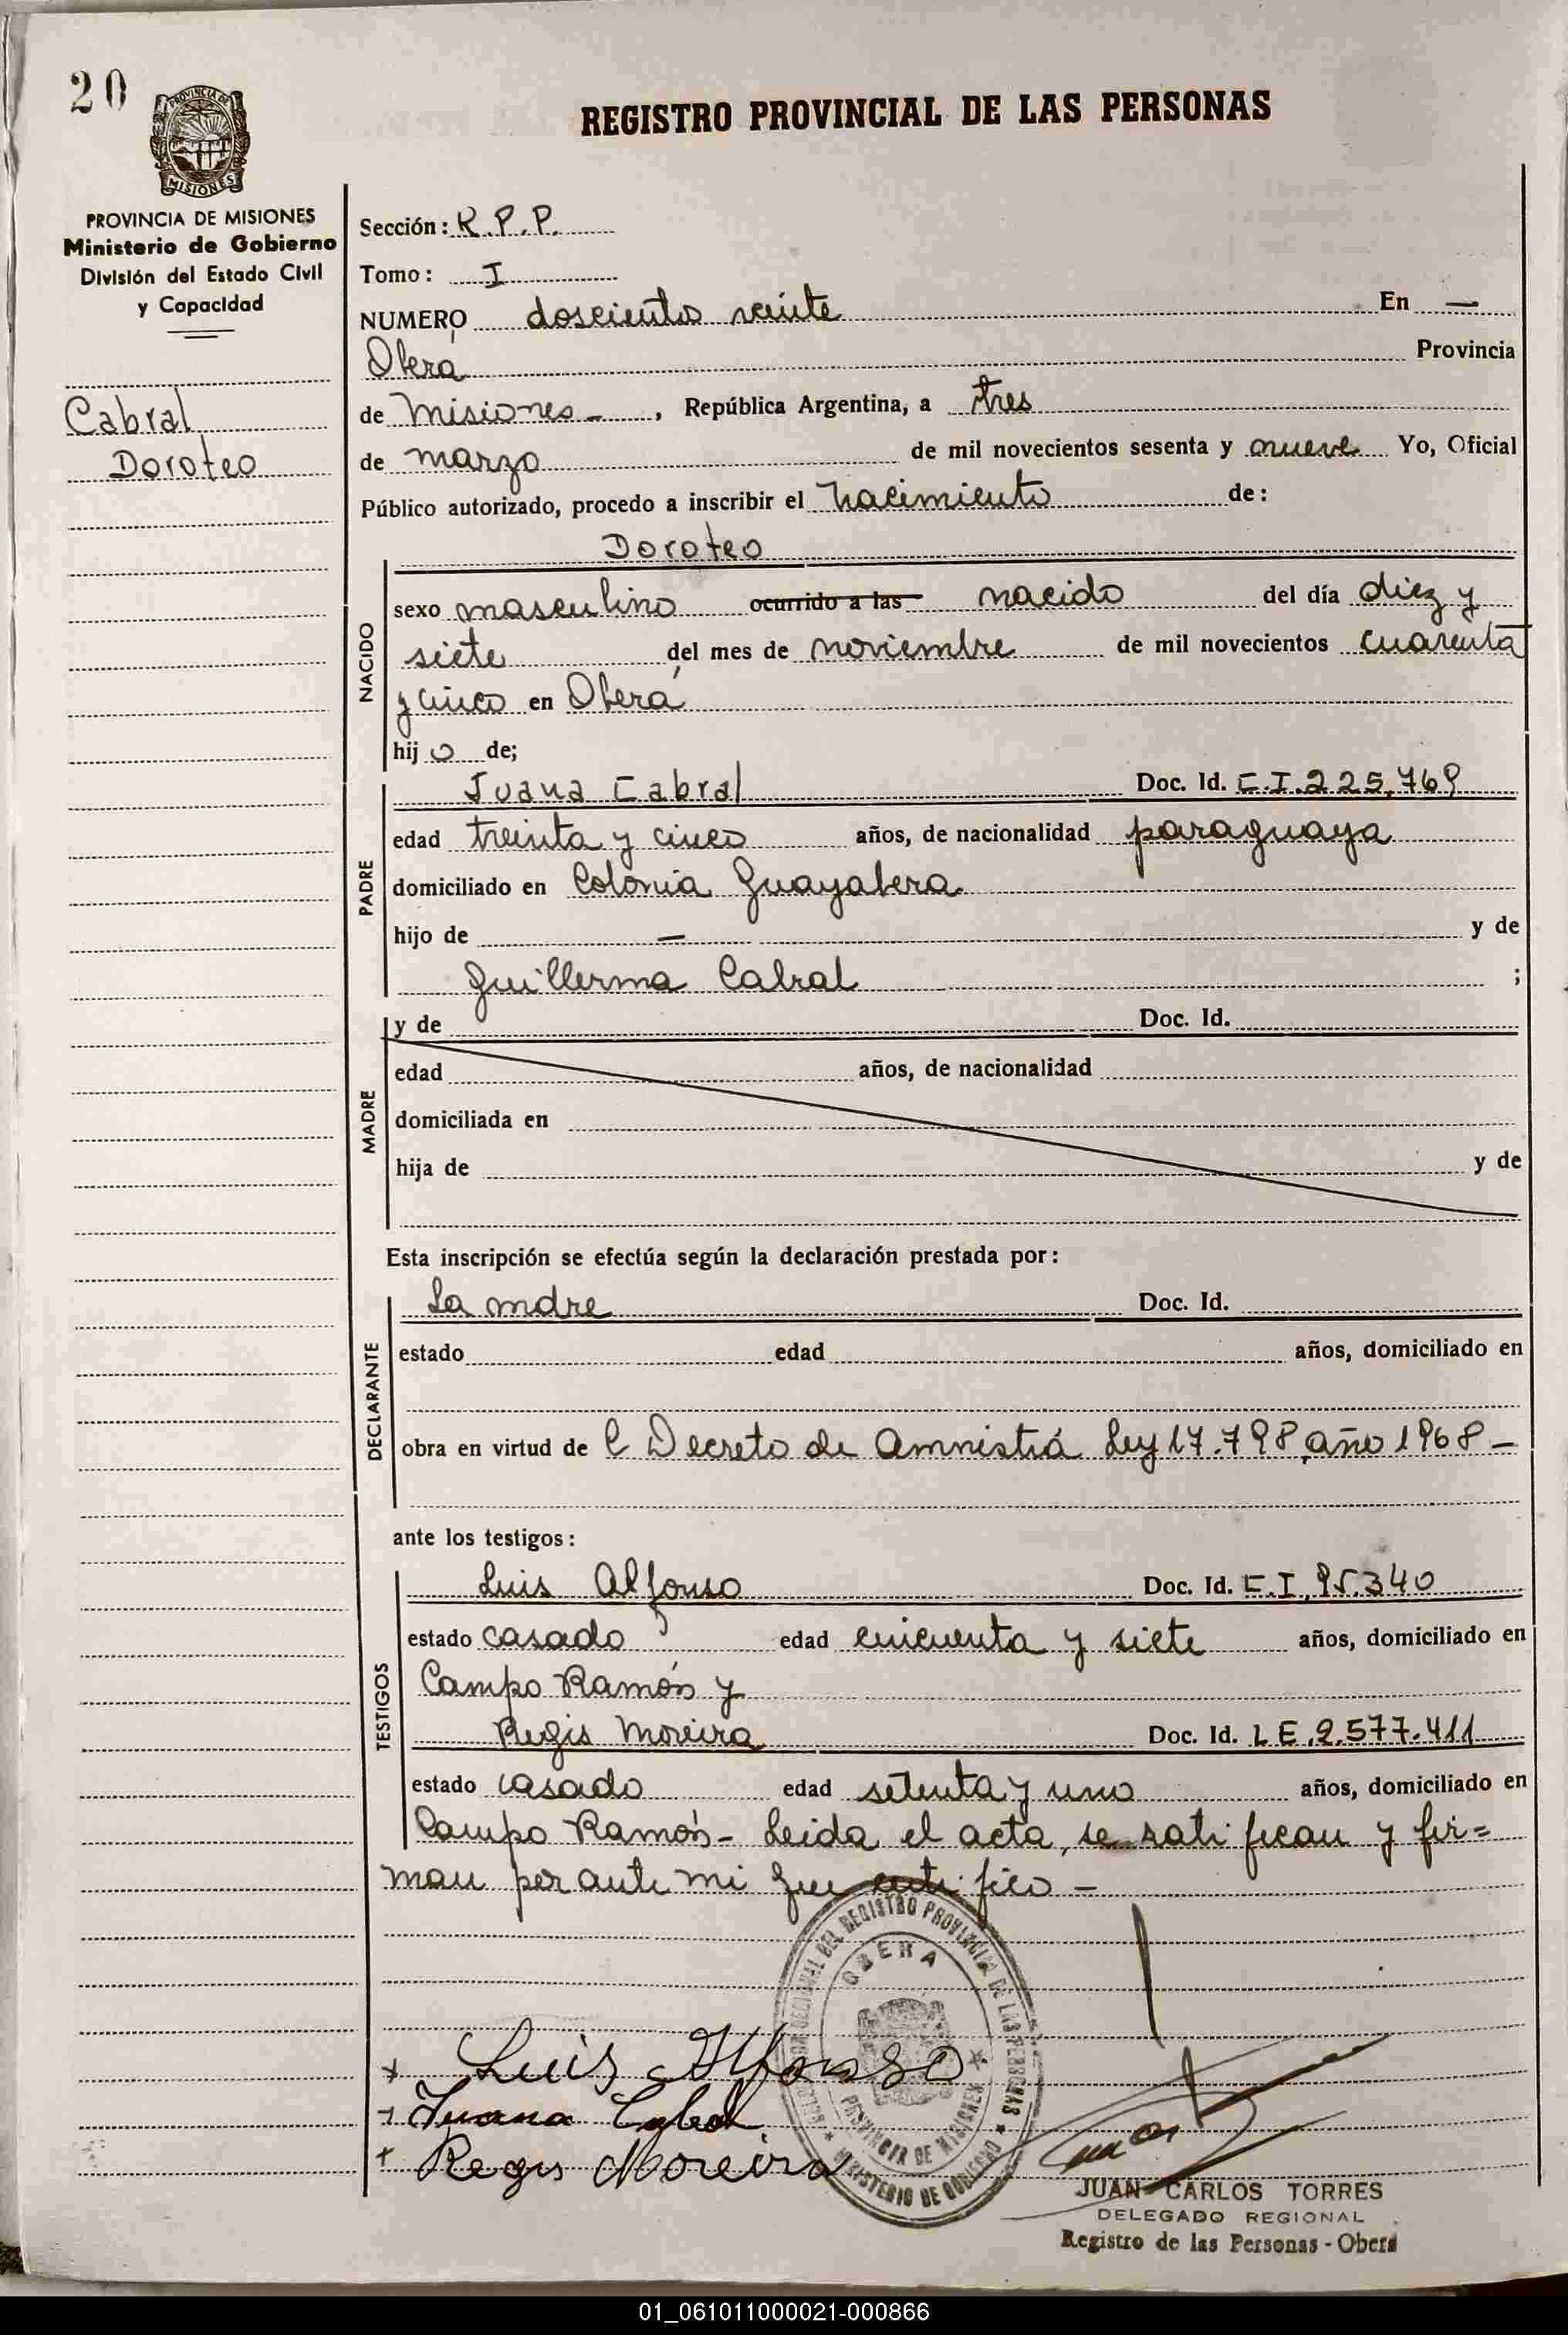 20
REGISTRO PROVINCIAL DE LAS PERSONAS
PROVINCIA DE
MISIONES
PROVINCIA DE MISIONES
Ministerio de Gobierno
División del Estado Civil
y Capacidad
Cabral
Doroteo
Sección: R.P.P.
Tomo: I
NUMERO doscientos veinte En —
Oberá Provincia
de Misiones - , República Argentina, a tres
de marzo de mil novecientos sesenta y nueve Yo, Oficial
Público autorizado, procedo a inscribir el nacimiento de:
Doroteo
NACIDO
sexo masculino ocurrido a las nacido del día diez y
siete del mes de noviembre de mil novecientos cuarenta
y cinco en Oberá
hij o de;
PADRE
Juana Cabral Doc. Id. C.I. 225,769
edad treinta y cinco años, de nacionalidad paraguaya
domiciliado en Colonia Guayabera
hijo de — y de
Guillerma Cabral ;
MADRE
y de Doc. Id.
edad años, de nacionalidad
domiciliada en
hija de y de
Esta inscripción se efectúa según la declaración prestada por:
DECLARANTE
La mdre Doc. Id.
estado edad años, domiciliado en
obra en virtud de l Decreto de Amnistiá Ley 17.798, año 1968 -
ante los testigos:
TESTIGOS
Luis Alfonso Doc. Id. C.I. 95.340
estado casado edad cincuenta y siete años, domiciliado en
Campo Ramón y
Regis Moreira Doc. Id. LE.2.577.411
estado casado edad setenta y uno años, domiciliado en
Campo Ramón - Leida el acta, se ratifican y fir=
man por ante mi que certifico -
DEL REGISTRO PROVINCIAL DE LAS PERSONAS
OBERA
PROVINCIA DE MISIONES
MINISTERIO DE GOBIERNO
Luis Alfonso
Juana Cabral
Regis Moreira
JUAN CARLOS TORRES
DELEGADO REGIONAL
Registro de las Personas - Oberá
01_061011000021-000866